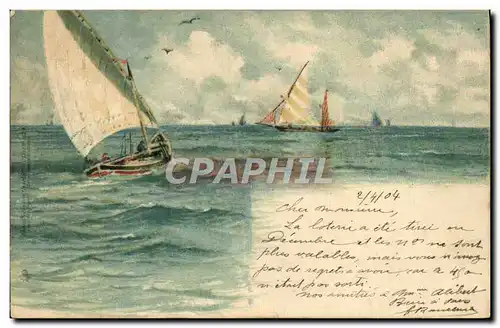 CPAPHIL
2/4/04
Cher monsieur,
La loterie a été tirée en
Décembre et les nos ne sont
plus valables, mais vous n'avez
pas de regrets à avoir, car
n'était pas sorti.
nos amitiés à Mme Alibert